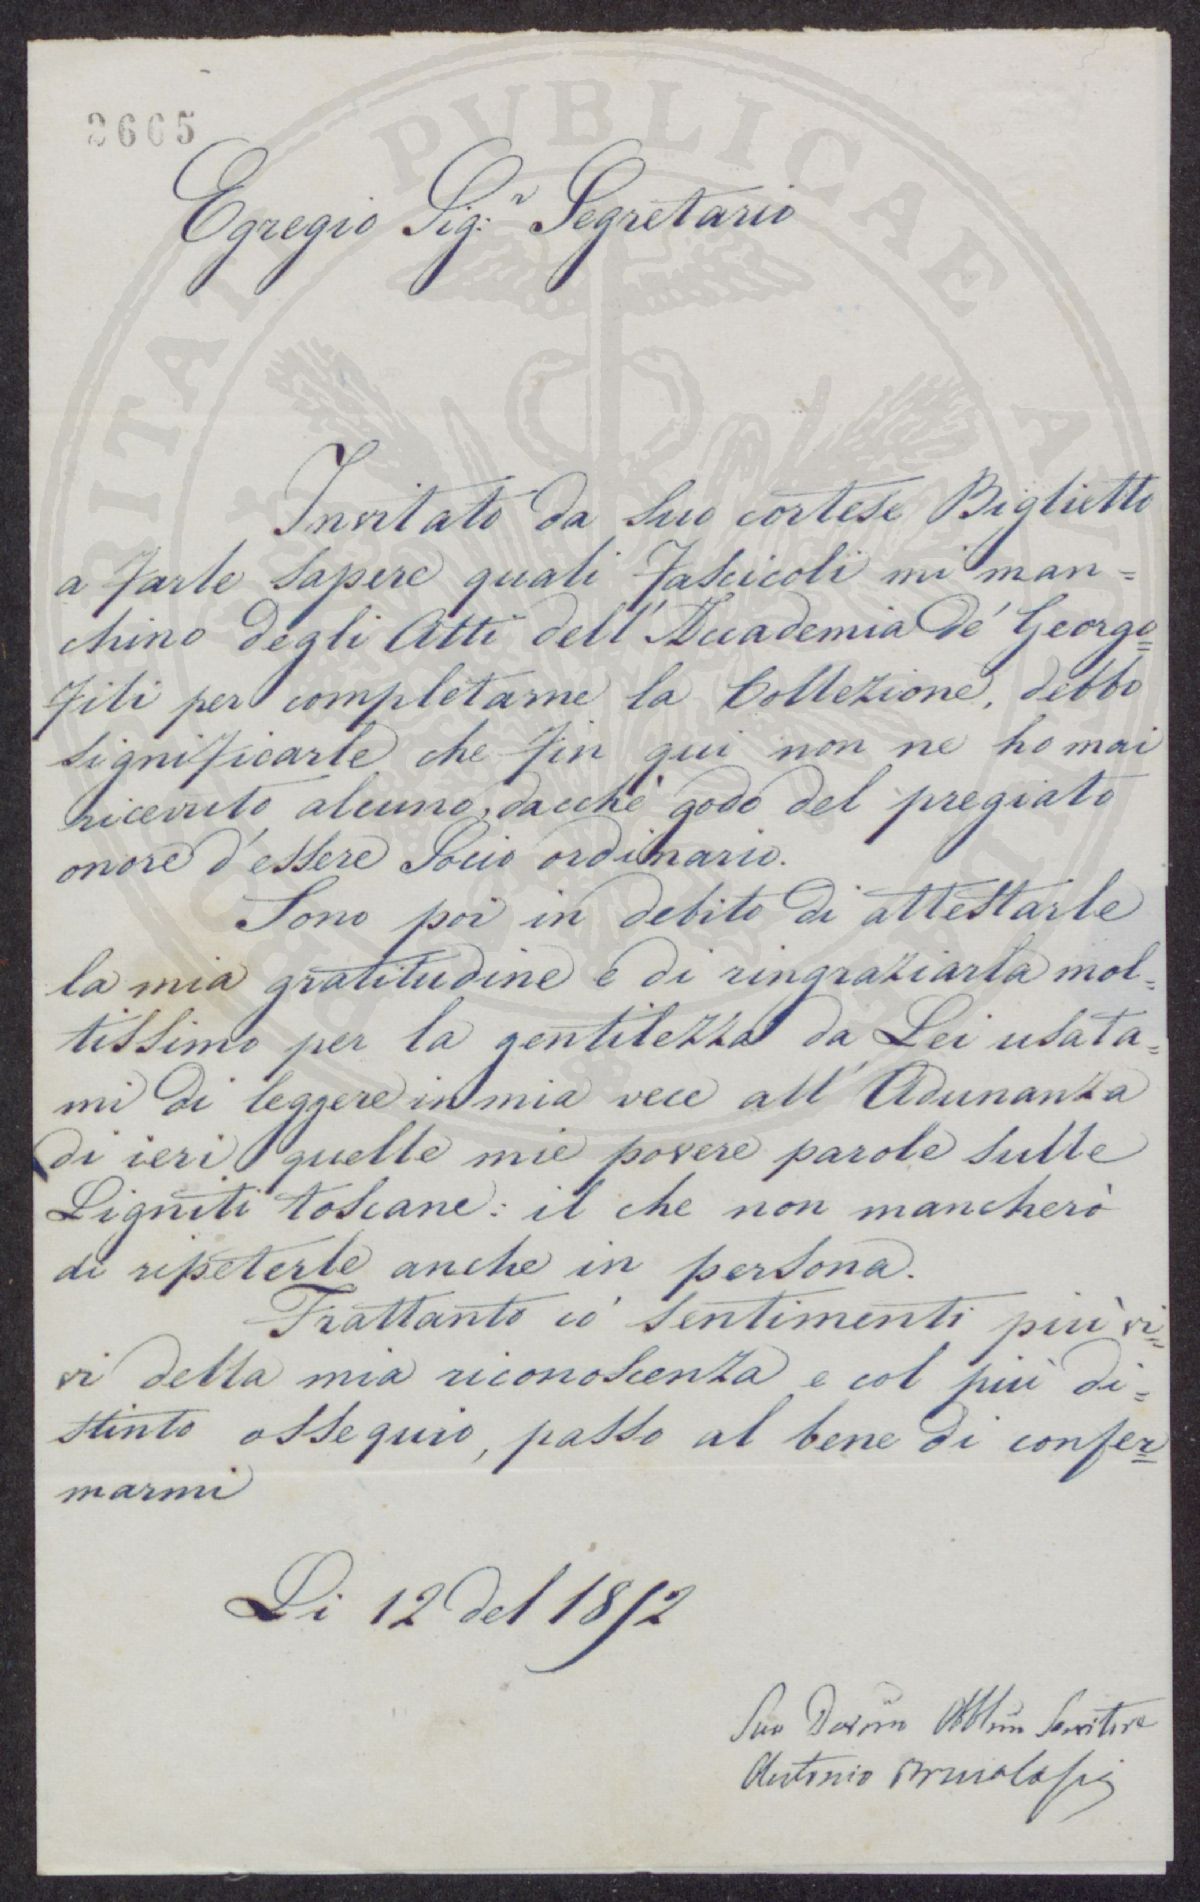 2605
Egregio Sig:r Segretario
Invitato da suo cortese Biglietto
a farle sapere quali fascicoli mi man=
chino degli Atti dell'Accademia de' Georgo=
fili per completarne la Collezione, debbo
significarle che fin qui non ne ho mai
ricevuto alcuno, dacchè godo del pregiato
onore d'essere Socio ordinario.
Sono poi in debito di attestarle
la mia gratitudine e di ringraziarla mol=
tissimo per la gentilezza da Lei usata=
mi di leggere in mia vece all'Adunanza
di ieri quelle mie povere parole sulle
Ligniti toscane: il che non mancherò
di ripeterle anche in persona.
Frattanto co' sentimenti più vi=
vi della mia riconoscenza e col più di=
stinto ossequio, passo al bene di confer=
marmi
Li 12 del 1852
Suo Devmo Obblmo Servitore
Antonio
PUBLICAE